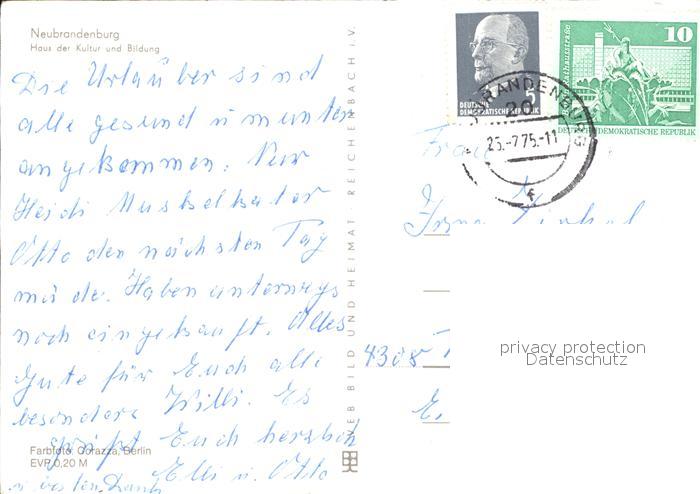 Neubrandenburg
Haus der Kultur und Bildung
Die Urlauber sind
alle gesund u munter
angekommen. Nur
Heidi Muskelkater
Otto den nächsten Tag
müde. Haben unterwegs
noch eingekauft. Alles
Gute für Euch alle
besonders Willi. Es
grüßt Euch herzlich
Elli u. Otto
Farbfoto: Corazza, Berlin
EVP 0,20 M
VEB BILD UND HEIMAT REICHENBACH i.V.
5
DEUTSCHE
DEMOKRATISCHE REPUBLIK
10
Rathausstraße
DEUTSCHE DEMOKRATISCHE REPUBLIK
BRANDENBURG
20
25.-7.75.-11
f
Frau
4308
privacy protection
Datenschutz